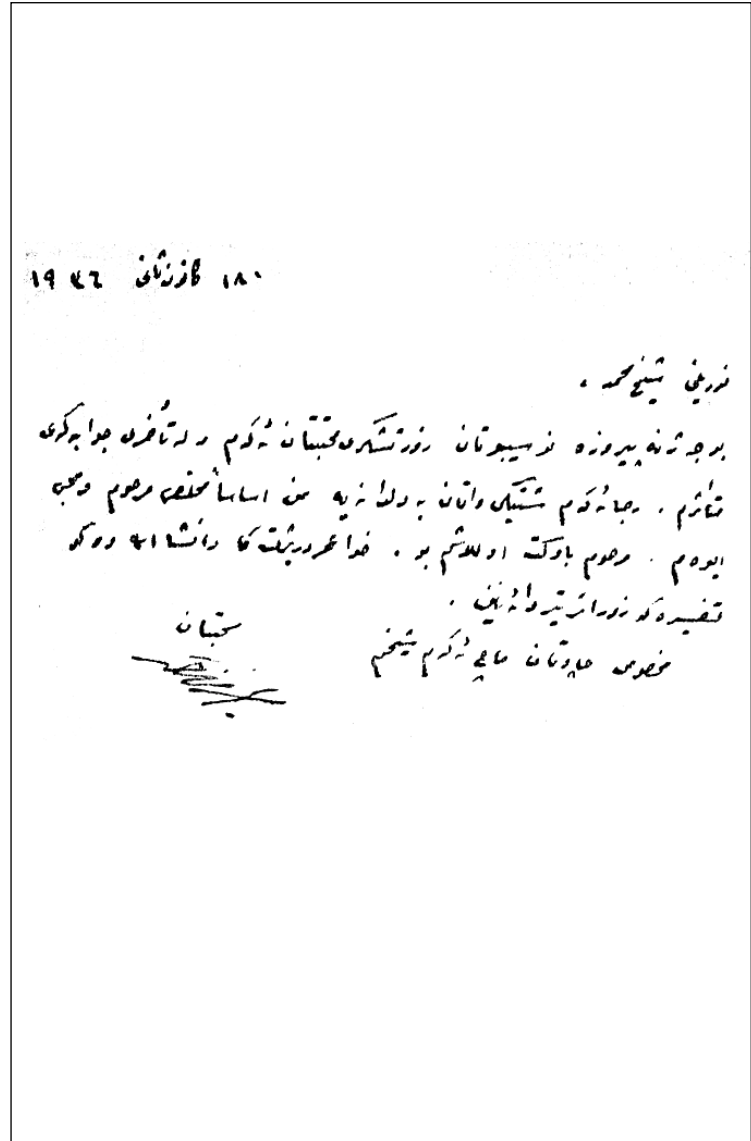 ١٨ كانون ثانى ١٩٣٦
نوريينى شيخ محمد ،
بو جه ژنه پيروزه نوسيبوتان زور تشكرى محبتتان ئه كه م و له تأخرى جوابه كه ى
متأثرم . رجا ئه كه م شتيكى واتان به دلدا نه يه من اساساً مخلص مرحوم ومحبى
ايوه م . مرحوم باوكت اوللادشم بو . خوا عمر دريژت كا وانشا الله وه كو
تفسيره كه زور اثر تير دائه نين .
مخصوص چاوتان ماچ ئه كه م شيخم
محبتان